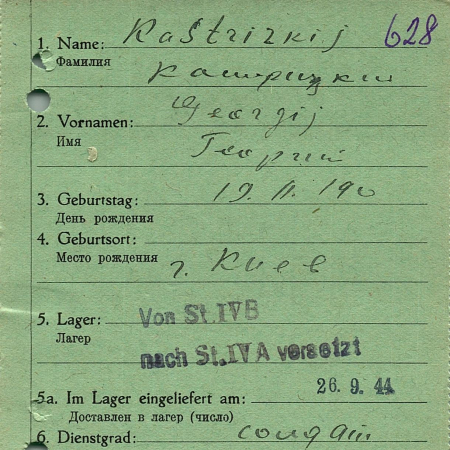 628
1. Name: Kaštrizkij
Фамилия
2. Vornamen: Georgij
Имя Георгий
3. Geburtstag: 19. II. 190
День рождения
4. Geburtsort:
Место рождения г. Киев
5. Lager: Von St.IVB
Лагер
nach St.IVA versetzt
5a. Im Lager eingeliefert am: 26. 9. 44
Доставлен в лагер (число)
6. Dienstgrad: солдат